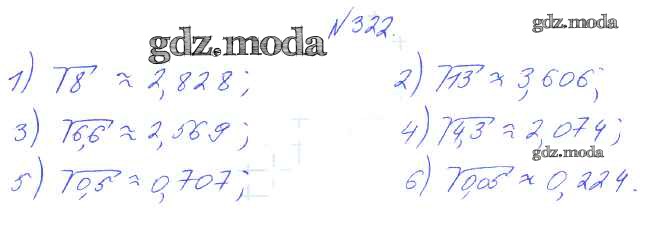 N 322.
gdz.moda
gdz.moda
1) √8 ≈ 2,828; 2) √13 ≈ 3,606;
3) √6,6 ≈ 2,569; 4) √4,3 ≈ 2,074;
gdz.moda
5) √0,5 ≈ 0,707; 6) √0,05 ≈ 0,224.